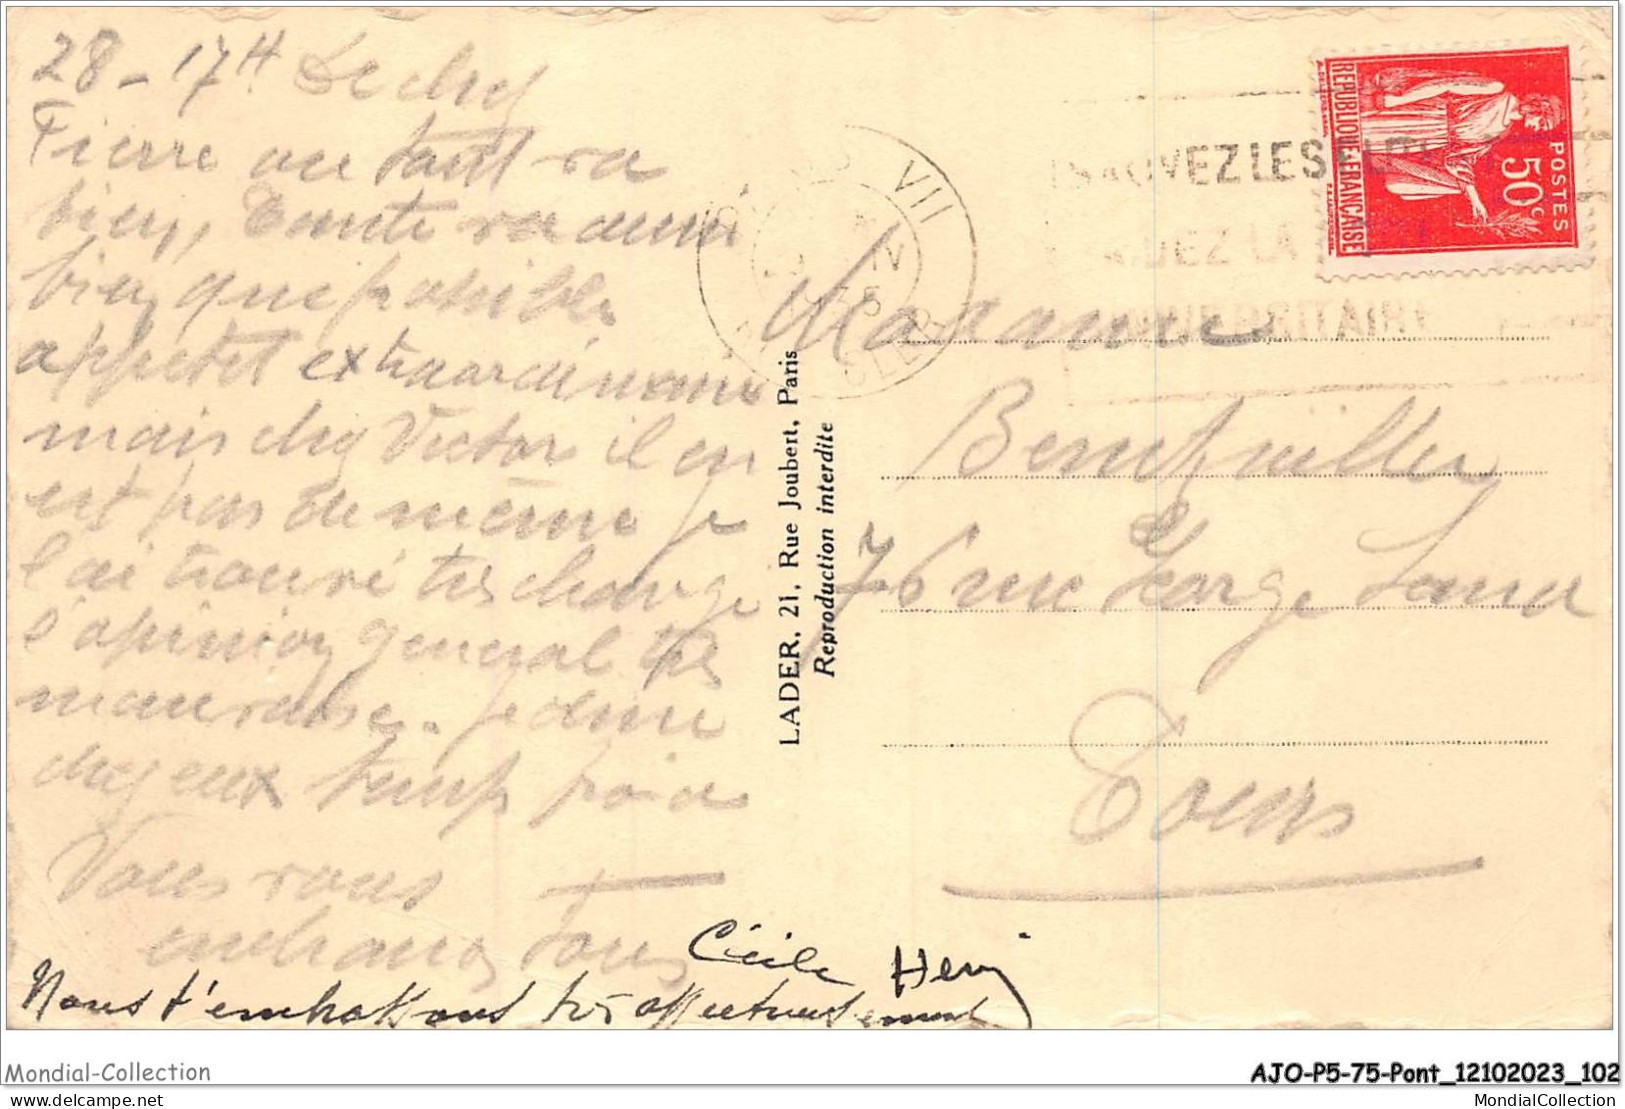 28 - 17H De chez
Pierre ou tout va
bien, Tante va aussi
bien que possible
appetet extraordinaire
mais chez Victor il en
est pas de même je
l'ai trouvé très changé
s'opinion general très
mauvaise. Je dine
chez eux temps froid
Vous vous
embrassez tous
Cécile Henri
Nous t'embrassons très affectueusement
LADER, 21, Rue Joubert, Paris
Reproduction interdite
VII
IV
35
SAUVEZ LES
AIDEZ LA
UNIVERSITAIRE
REPUBLIQUE FRANÇAISE
POSTES
50c
Madame
76 rue George Sand
Tours
Mondial-Collection
AJO-P5-75-Pont_12102023_102
Mondial-Collection.com
MondialCollection